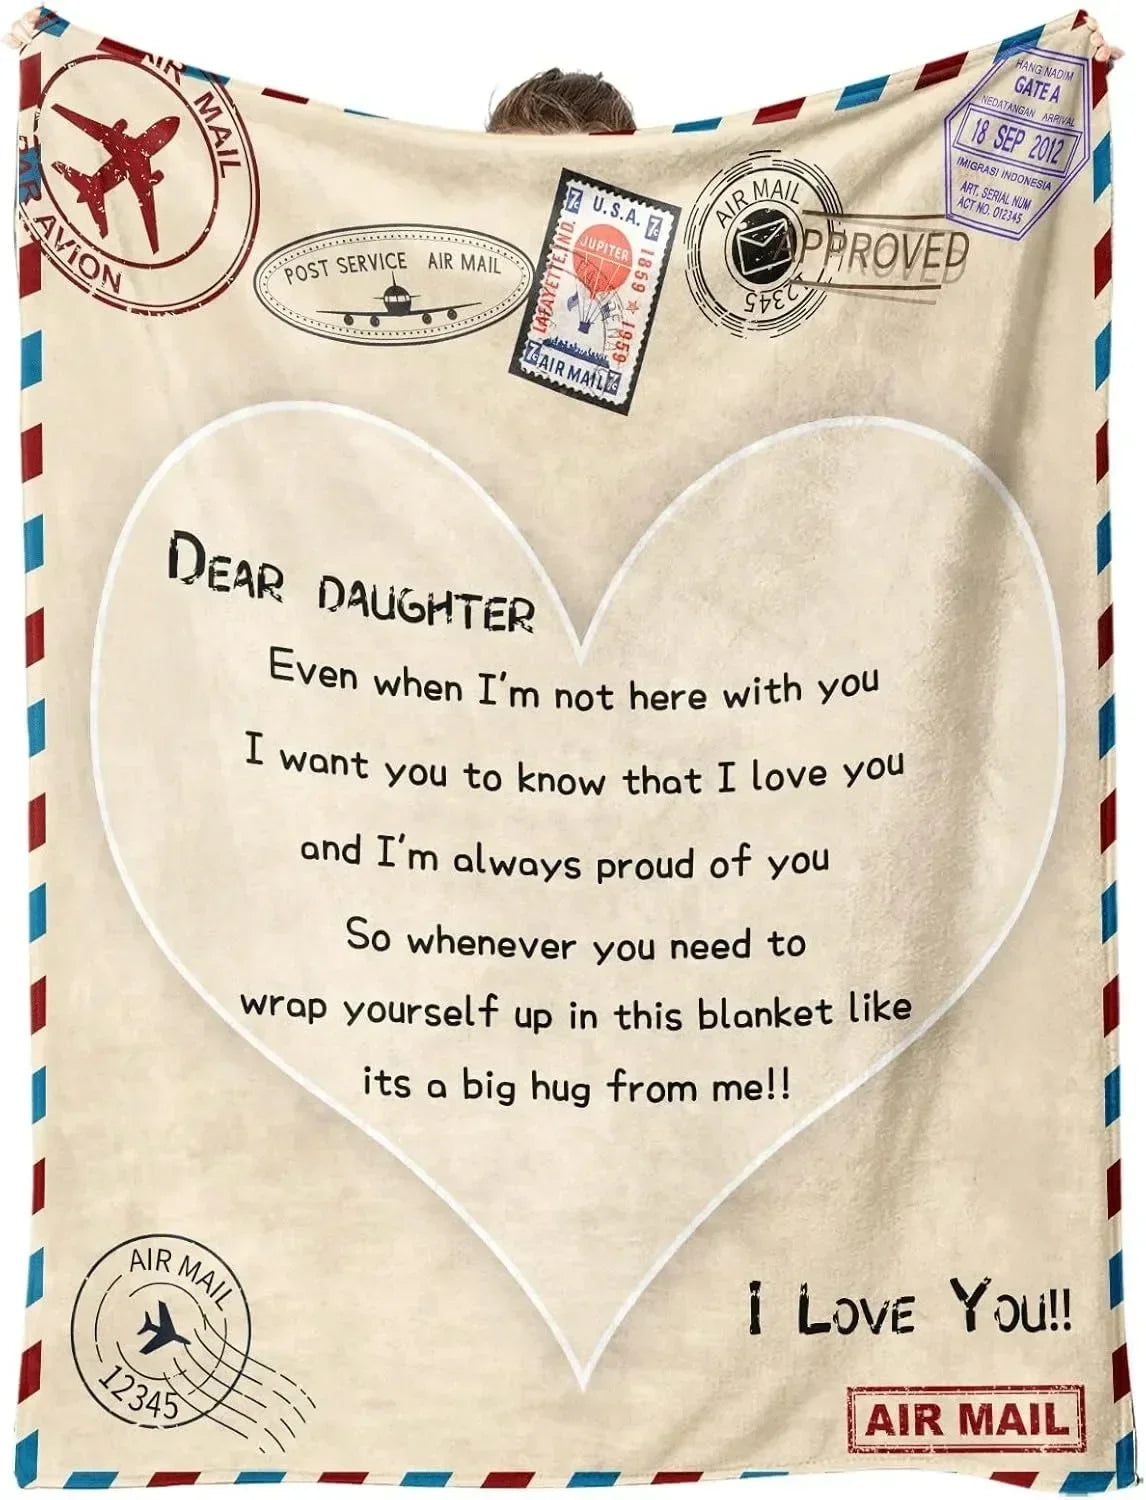 AIR MAIL
PAR AVION
POST SERVICE AIR MAIL
7c U.S.A. 7c
JUPITER
LAFAYETTE, IND.
1859 ★ 1959
7c AIR MAIL 7c
AIR MAIL
12345
APPROVED
HANG NADIM
GATE A
KEDATANGAN ARRIVAL
18 SEP 2012
IMIGRASI INDONESIA
ART. SERIAL NUM
ACT NO. 012345
DEAR DAUGHTER
Even when I'm not here with you
I want you to know that I love you
and I'm always proud of you
So whenever you need to
wrap yourself up in this blanket like
its a big hug from me!!
I LOVE YOU!!
AIR MAIL
12345
AIR MAIL